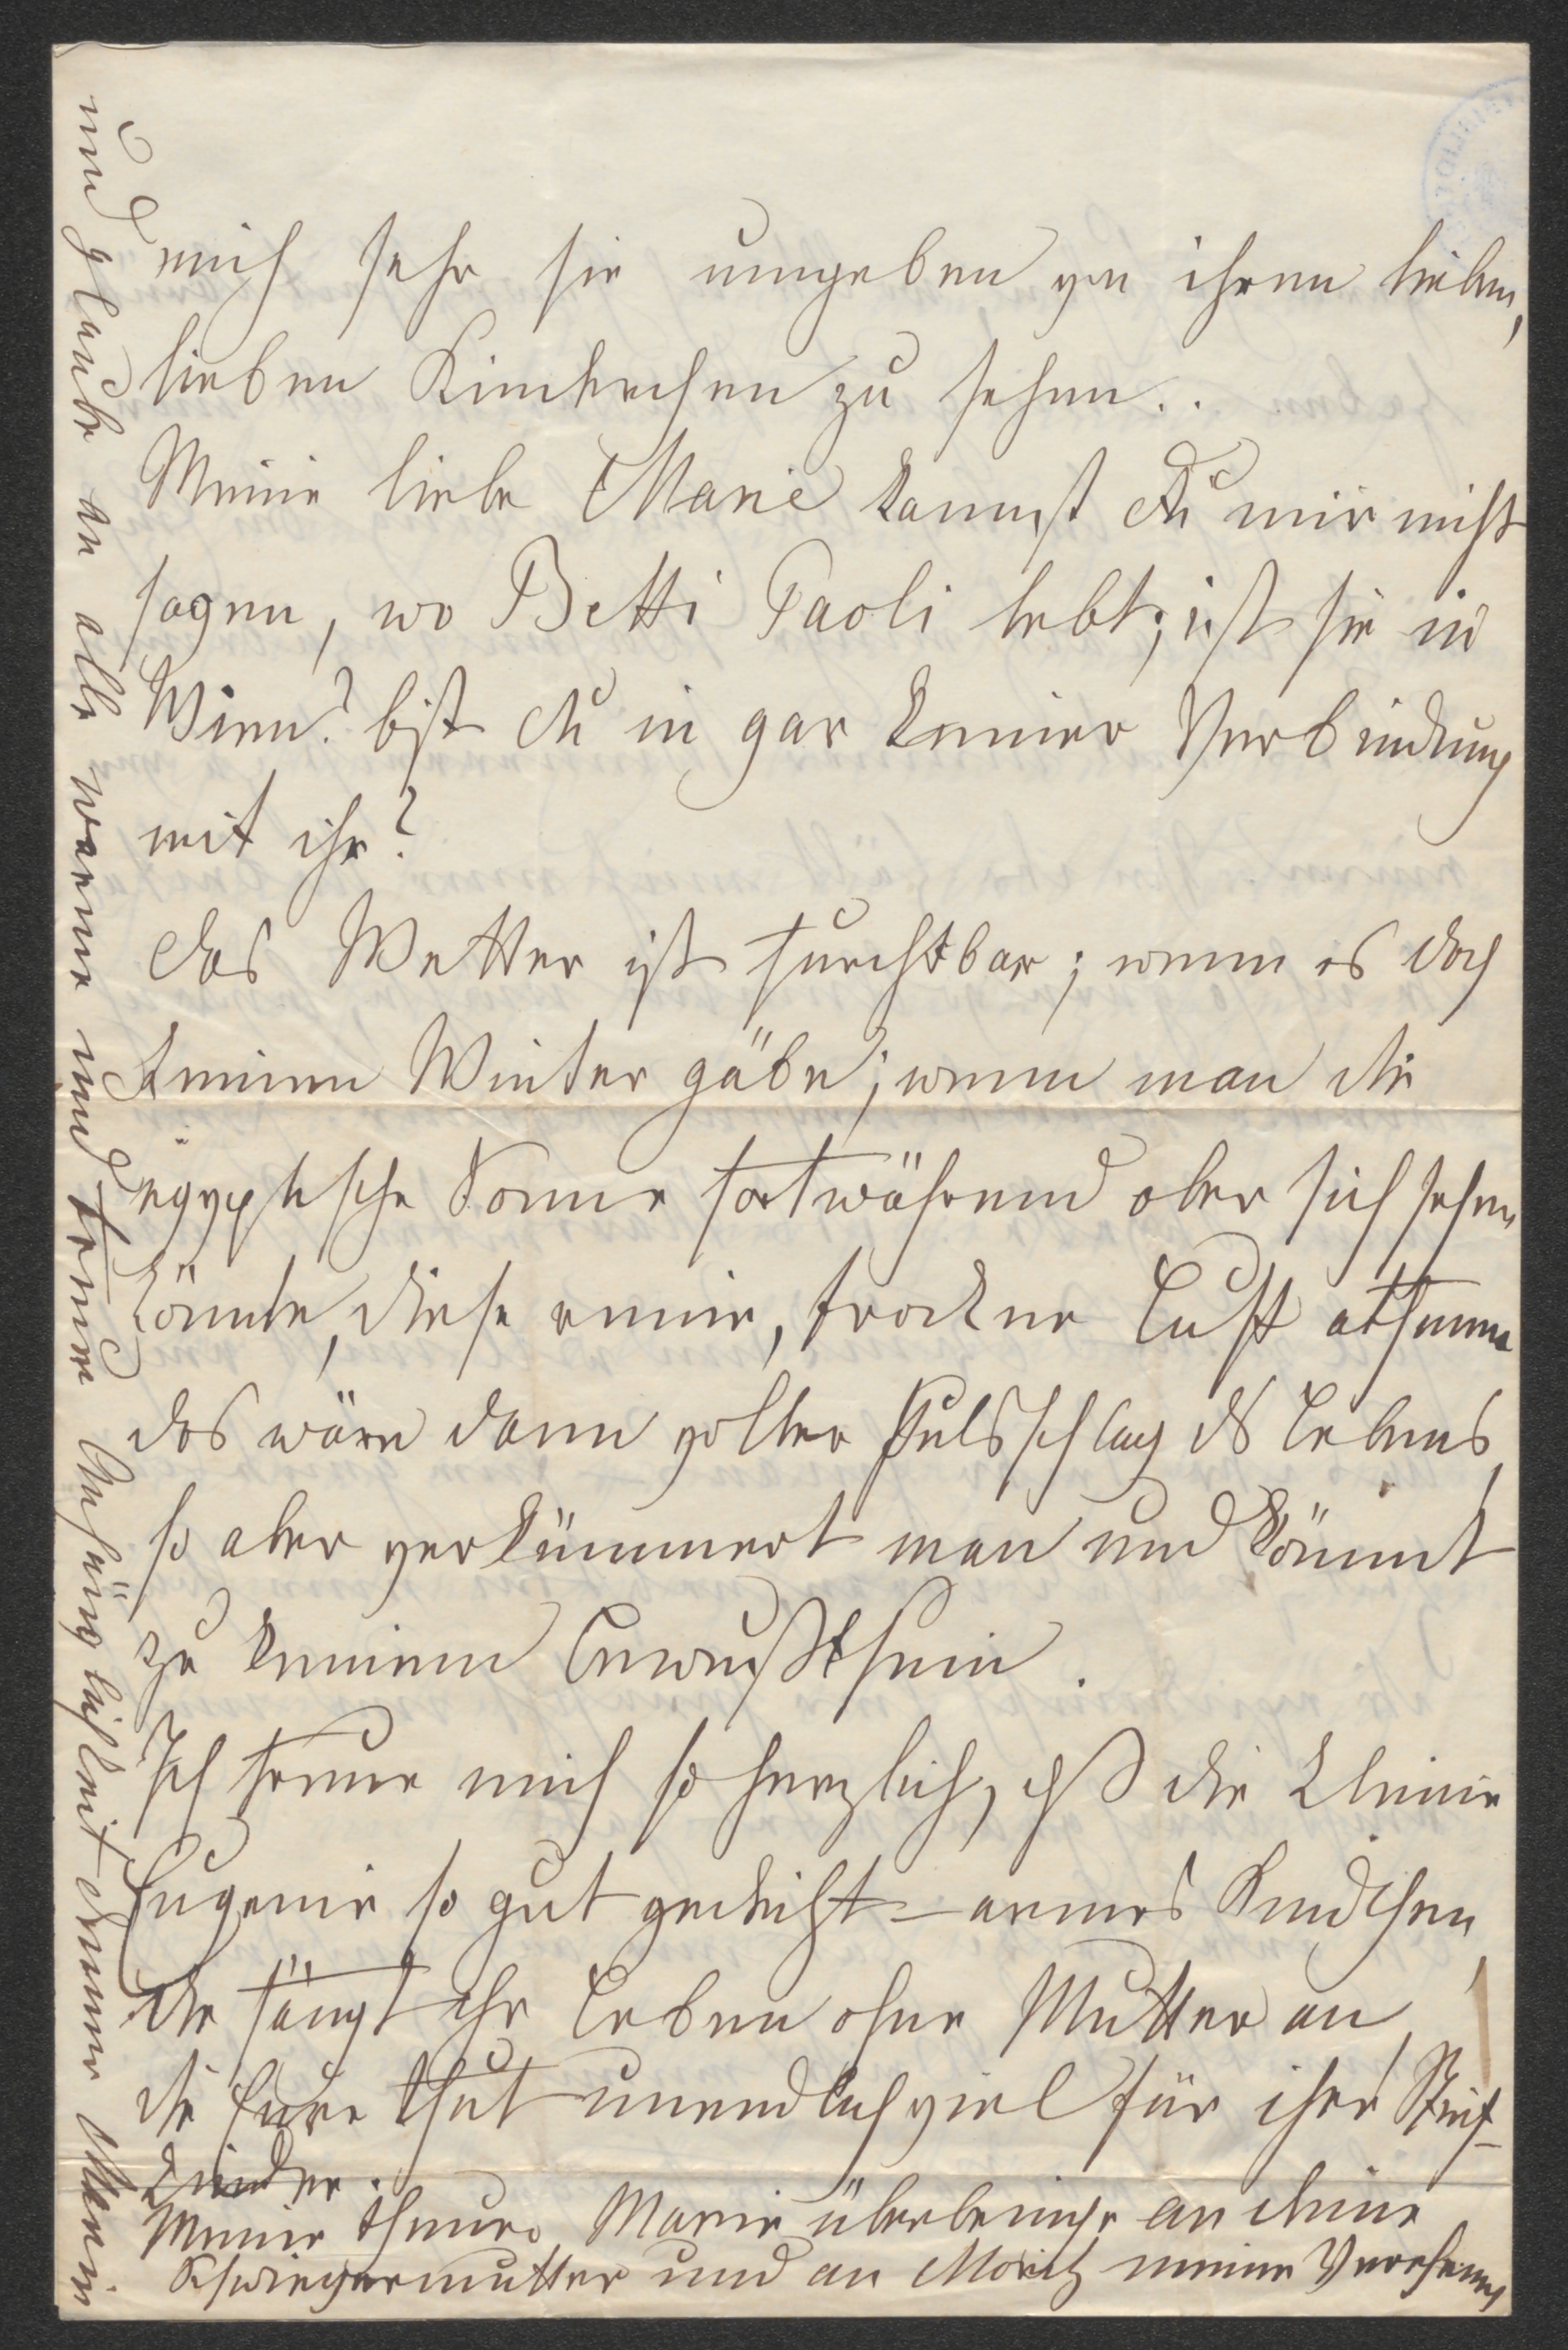 mich sehr sie umgeben von ihren lieben,
lieben Kinderchen zu sehen..
Meine liebe Marie kannst Du mir nicht
sagen, wo Betti Paoli lebt; ist sie in
Wien? bist du in gar keiner Verbindung
mit ihr?
das Wetter ist furchtbar; wenn es doch
keinen Winter gäbe; wenn man die
egyptische Sonne fortwährend ober sich sehen
könnte, diese reine, trockne Luft athmen
das wäre dann voller Pulsschlag des Lebens,
so aber verkümmert man und kömmt
zu keinem Bewußtsein.
Ich freue mich so herzlich, daß die kleine
Eugenie so gut gedeiht – armes Kindchen,
die fängt ihr Leben ohne Mutter an,
die thut unendlich viel für ihre Stief-
kinder.
Meine theure Marie überbringe an deine
Schwiegermutter und an Moritz meine Verehrung
und glaube an alle warme und treue Anhänglichkeit deiner Marie